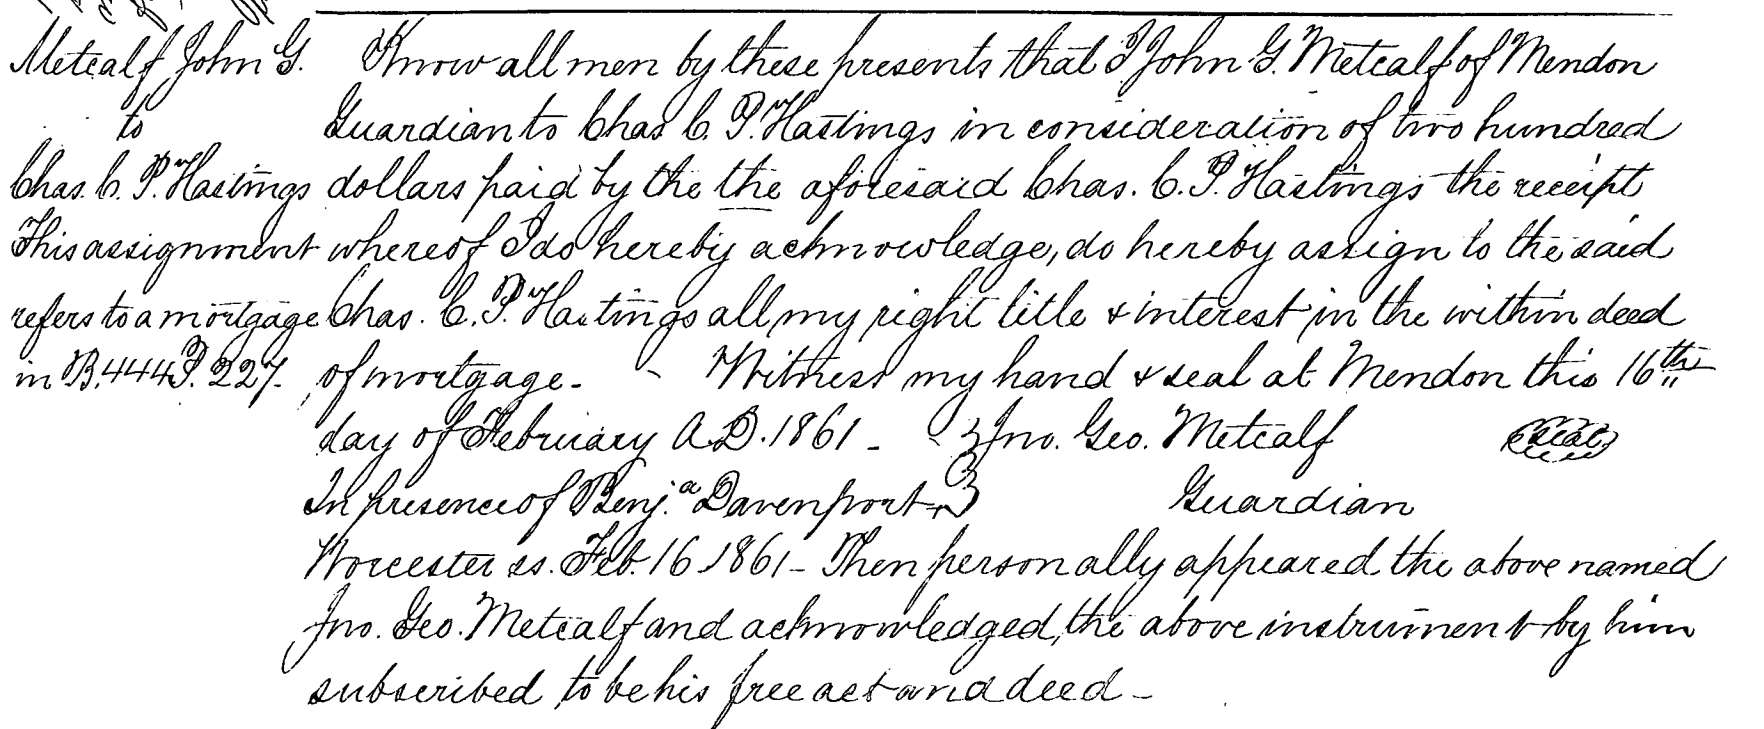 Metcalf John G.
to
Chas. C. P. Hastings
This assignment
refers to a mortgage
in B. 444 P. 227.
Know all men by these presents that I John G. Metcalf of Mendon
Guardian to Chas C. P. Hastings in consideration of two hundred
dollars paid by the the aforesaid Chas. C. P. Hastings the receipt
whereof I do hereby acknowledge, do hereby assign to the said
Chas. C. P. Hastings all my right title & interest in the within deed
of mortgage. - Witness my hand & seal at Mendon this 16th
day of February A.D. 1861 - Jno. Geo. Metcalf seal
In presence of Benj.a Davenport Guardian
Worcester ss. Feb. 16 1861 - Then personally appeared the above named
Jno. Geo. Metcalf and acknowledged the above instrument by him
subscribed to be his free act and deed -